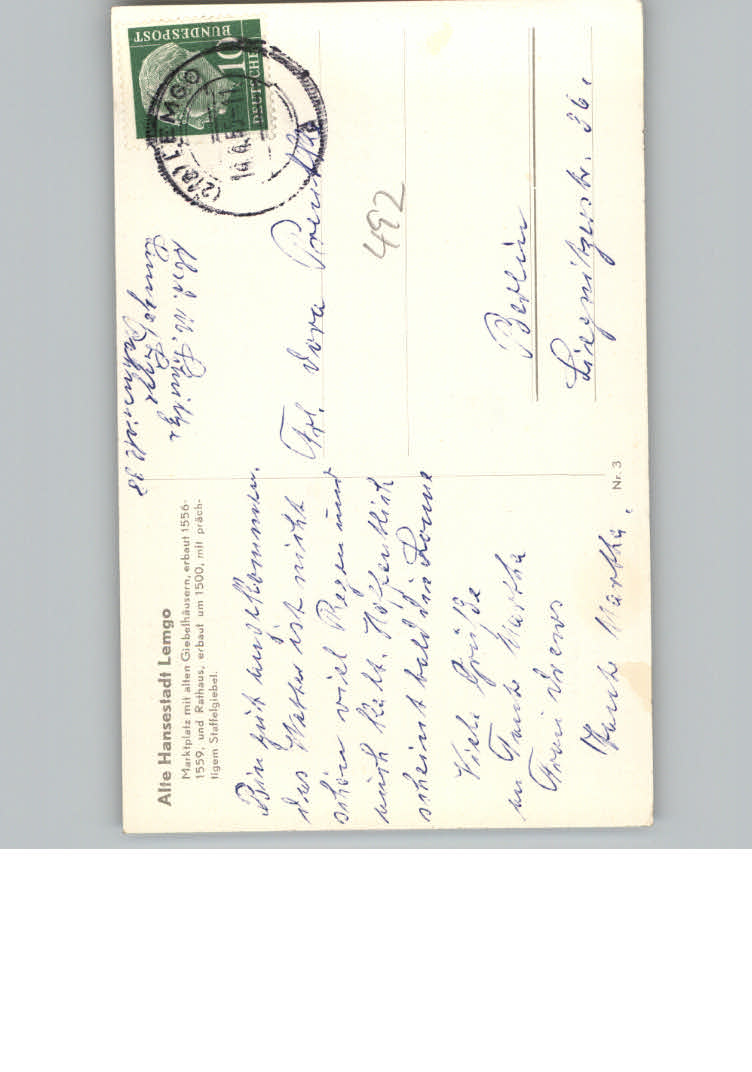 Alte Hansestadt Lemgo
Marktplatz mit alten Giebelhäusern, erbaut 1556-
1559, und Rathaus, erbaut um 1500, mit präch-
tigem Staffelgiebel.
Bin gut angekommen.
das Wetter ist nicht
schön viel Regen und
auch kalt. Hoffentlich
scheint bald die Sonne
Viele Grüße
an Tante Martha
Frau Drews
Tante Martha.
Abs. M.
Lemgo/Lippe
38
DEUTSCHE
BUNDESPOST
10
(21a) LEMGO
Frl. Dora
492
Berlin
Liegnitzerstr. 36.
Nr. 3